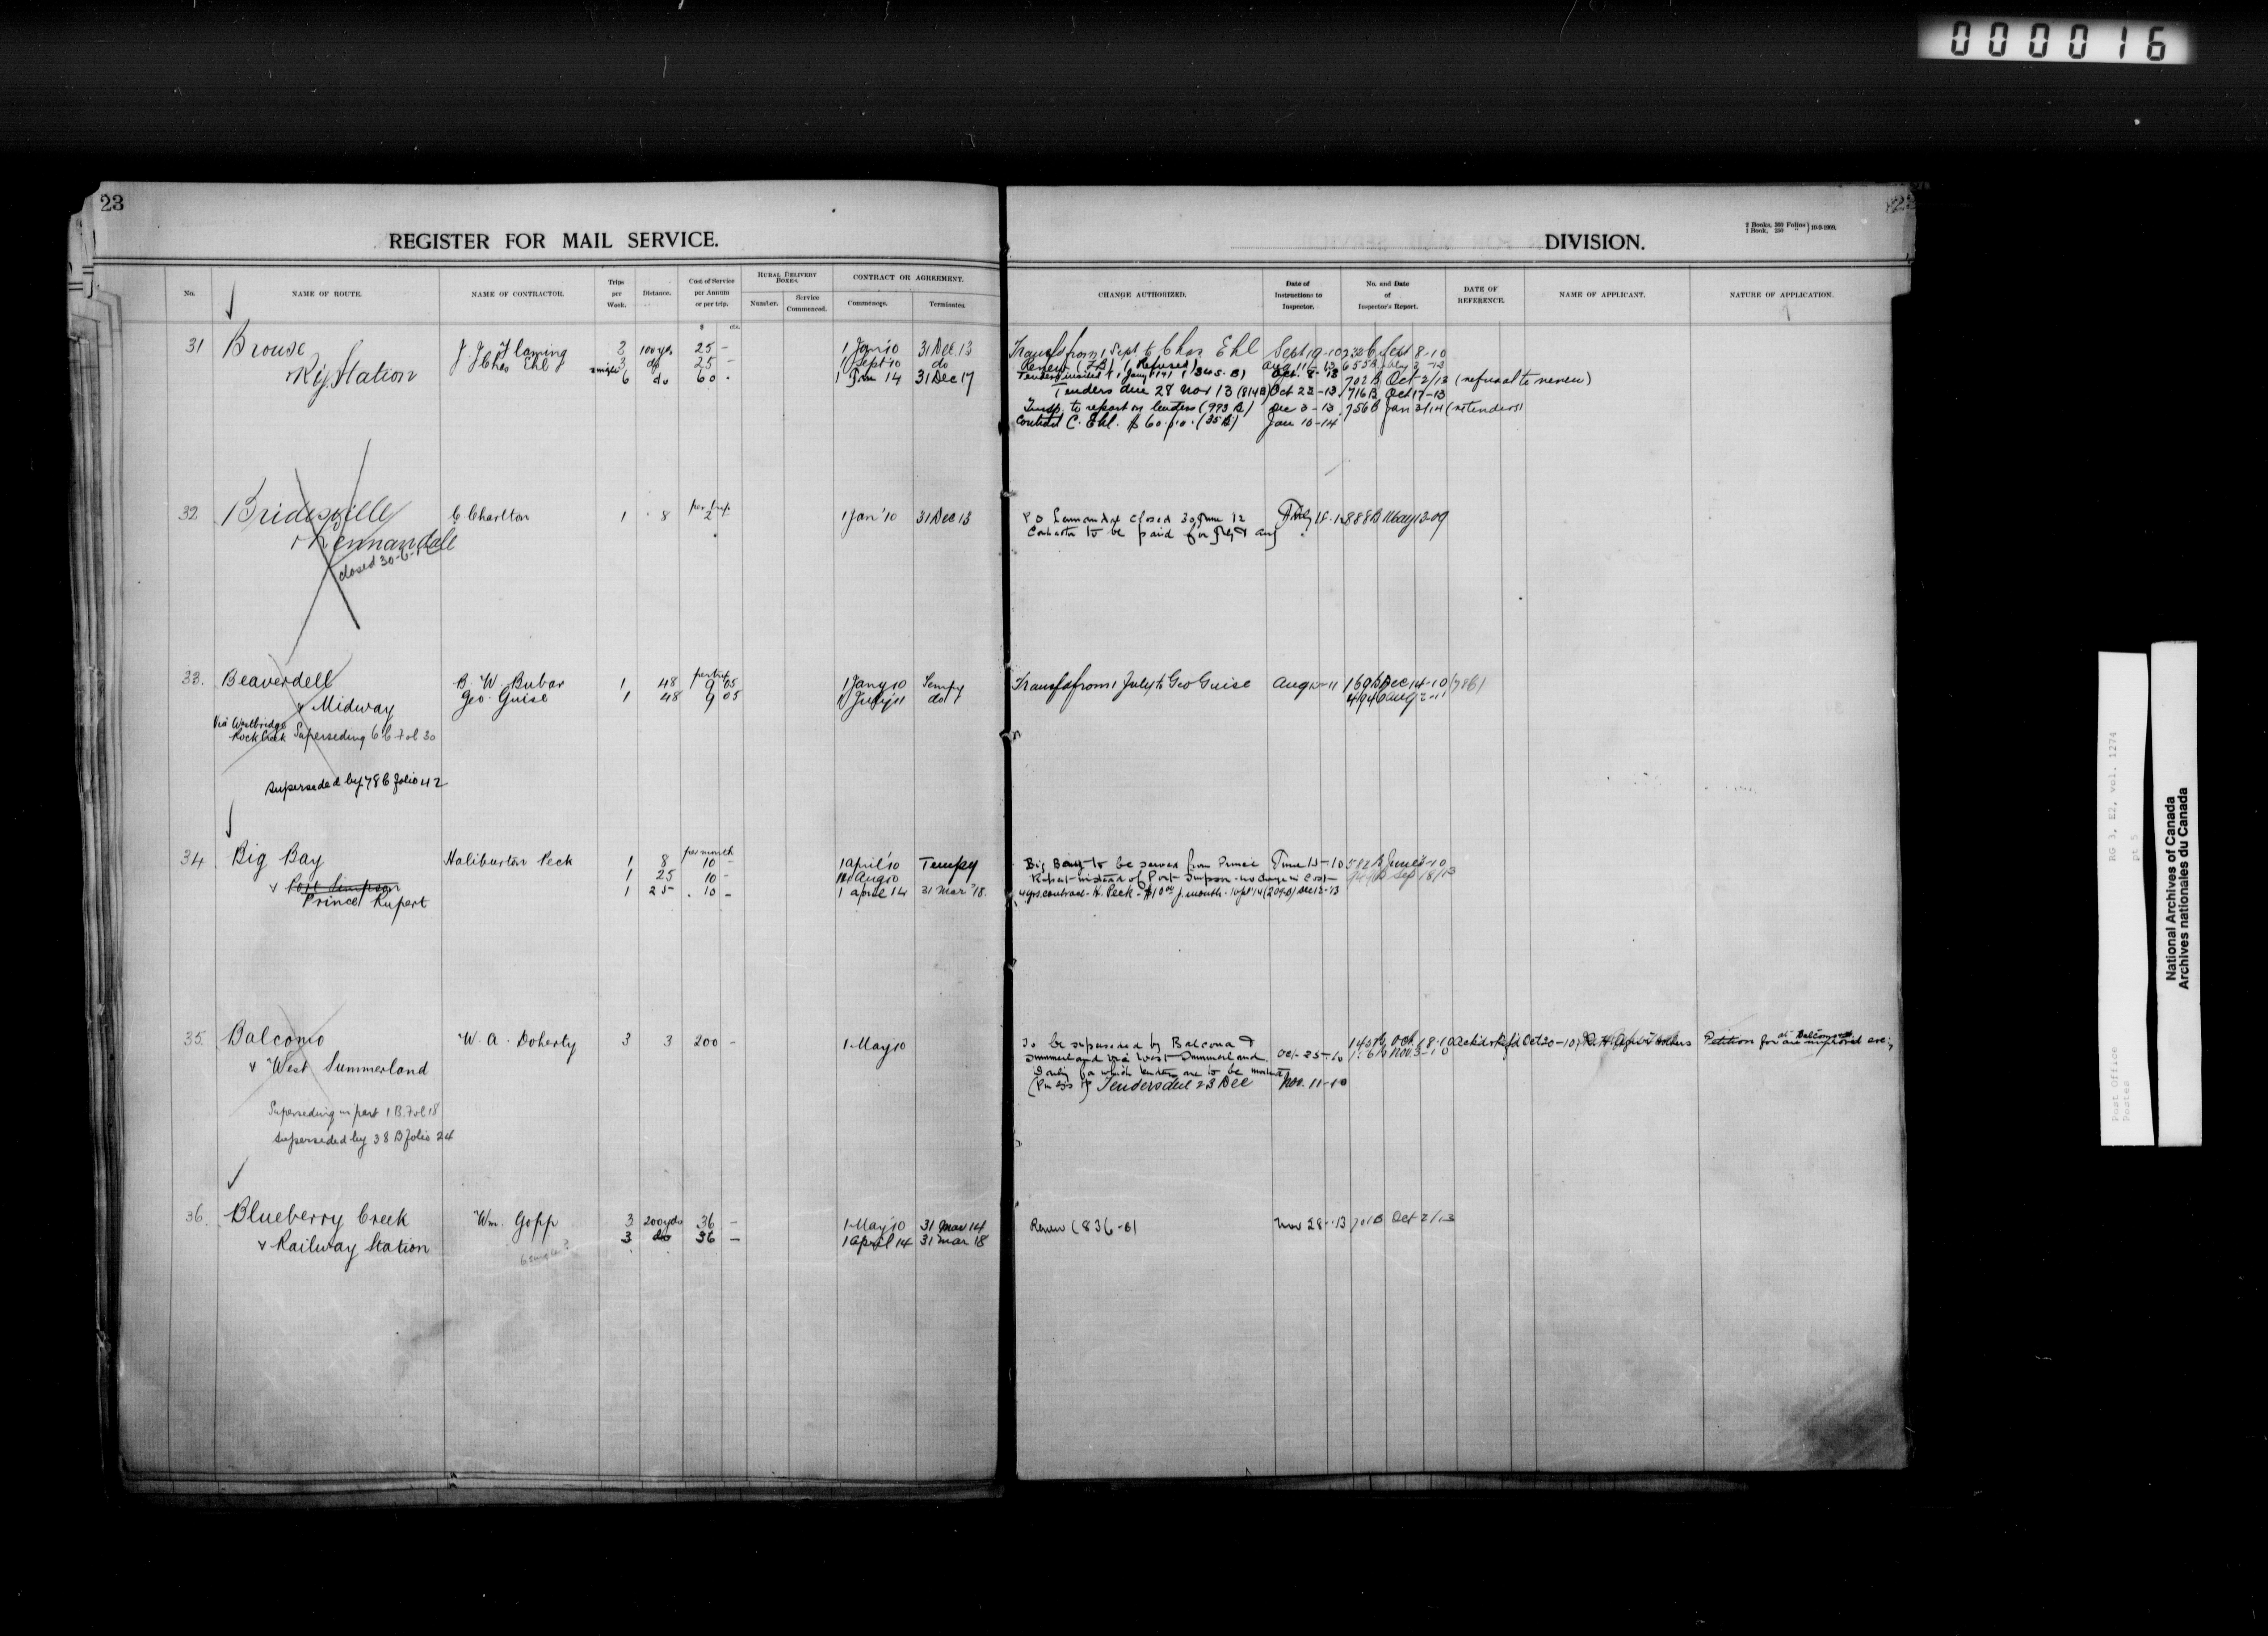 000016
23
REGISTER FOR MAIL SERVICE.
DIVISION.
2 Books, 300 Folios
1 Book, 250 " } 10-9-1909.
No.
NAME OF ROUTE.
NAME OF CONTRACTOR.
Trips per Week.
Distance.
Cost of Service per Annum or per trip.
RURAL DELIVERY BOXES.
Number.
Service Commenced.
CONTRACT OR AGREEMENT.
Commence.
Terminates.
CHANGE AUTHORIZED.
Date of Instructions to Inspector.
No. and Date of Inspector's Report.
DATE OF REFERENCE.
NAME OF APPLICANT.
NATURE OF APPLICATION.
$ cts.
31 Brouse 3 100 yds 25 - 1 Jan '10 31 Dec 13
Chas Ehl 3 do 25 - 1 Sept '10 do
Ry Station 6 do 60 . 1 Jan 14 31 Dec 17
Transfd from 1 Sept to Chas Ehl Sept 19-10 Sept 8-10
Renew (Refused)
Oct. 8-13 702 B Oct 2/13 (refusal to renew)
Tenders due 28 Nov 13 (814 B) Oct 22-13 716 B Oct 17-13
Insp. to report on tenders (993 B) Dec 3-13 756 B Jan 3/14 (retenders)
Contract C. Ehl. $60. p.a. (35 B) Jan 10-14
32 Bridesville C Charlton 1 8 per trip 2 1 Jan '10 31 Dec 13
closed 30-6-12
P O closed 30 June 12 888 B May 13-09
Contractor to be paid for July & Aug
33. Beaverdell B. W. Bubar 1 48 per trip 9 05 1 Jany 10 Tempy
& Midway Geo. Guise 1 48 9 05 1 July 11 do
Via Westbridge
Rock Creek Superseding 6 B Fol 30
Superseded by 78 B folio 42
Transfd from 1 July to Geo Guise Aug 11 169 B Dec 14-10 (786)
494 B Aug 2-11
34 Big Bay Haliburton Peck 1 8 per month 10 - 1 April '10 Tempy
1 25 10 - Aug 10
& Port Simpson 1 25 10 - 1 April 14 31 Mar '18.
Prince Rupert
Big Bay to be served from Prince June 15-10 582 B June 3-10
Rupert instead of Port Simpson - no change in Cost Sep 18/13
4 yrs. contract - H. Peck - $10.00 p. month - Dec 13-13
35. Balcomo W. A. Doherty 3 3 200 - 1 May 10
& West Summerland
Superseding in part 1 B. Fol 18
Superseded by 38 B folio 24
To be superseded by Balcomo & Oct 18-10 Oct 20-10
Summerland via West Summerland Oct-25-10 Nov. 3-10
Tenders due 23 Dec Nov. 11-10
Petition for an improved
36. Blueberry Creek Wm. Gopp 3 200 yds 36 - 1 May '10 31 Mar 14
& Railway Station 3 do 36 - 1 April 14 31 Mar 18
6 single?
Renew (836-B) Nov 28-13 701 B Oct 2/13
RG 3, E2, vol. 1274
pt 5
Post Office
Postes
National Archives of Canada
Archives nationales du Canada